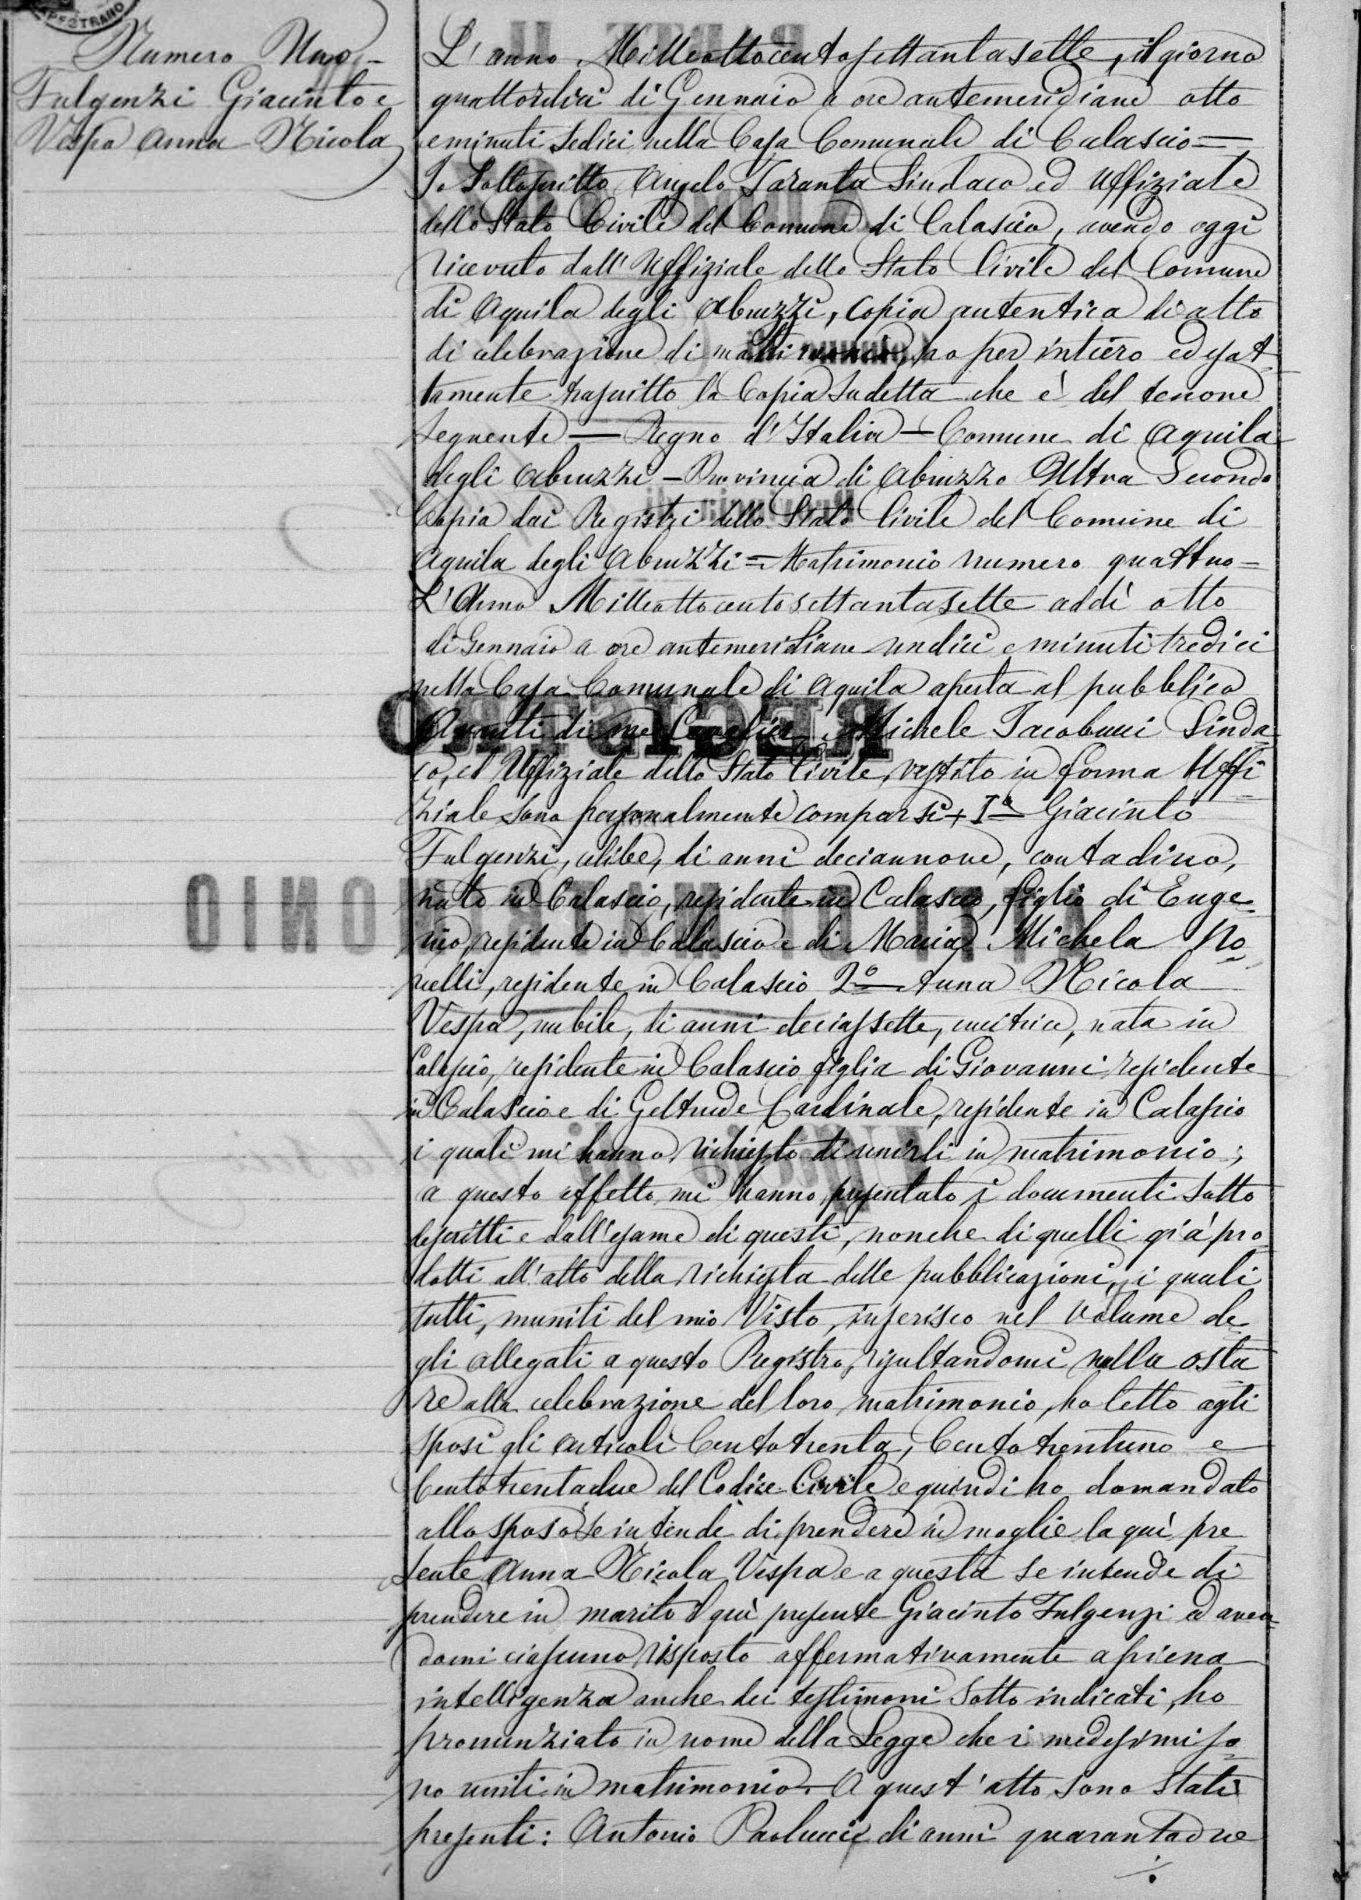 Numero Uno
Fulgenzi Giacinto e
Vespa Anna Nicola
L'anno Milleottocentosettantasette, il giorno
quattordici di Gennaio a ore antemeridiane otto
e minuti sedici nella Casa Comunale di Calascio =
Io Sottoscritto Angelo Taranta Sindaco ed Uffiziale
dello Stato Civile del Comune di Calascio, avendo oggi
ricevuto dall'Uffiziale dello Stato Civile del Comune
di Aquila degli Abruzzi, copia autentica di atto
di celebrazione di matrimonio, ho per intiero ed esat
tamente trascritto la Copia sudetta che è del tenore
seguente — Regno d'Italia — Comune di Aquila
degli Abruzzi — Provincia di Abruzzo Ultra Secondo
Copia dai Registri dello Stato Civile del Comune di
Aquila degli Abruzzi = Matrimonio numero quattro =
L'Anno Milleottocentosettantasette addì otto
di Gennaio a ore antemeridiane undici e minuti tredici
nella Casa Comunale di Aquila aperta al pubblico
Avanti di me Michele Jacobucci Sinda
co, ed Uffiziale dello Stato Civile, vestito in forma Uffi
ziale sono personalmente comparsi + I° Giacinto
Fulgenzi, celibe, di anni deciannove, contadino,
nato in Calascio, residente in Calascio, figlio di Euge
nio, residente in Calascio e di Maria Michela No
velli, residente in Calascio 2° Anna Nicola
Vespa, nubile, di anni deciassette, cucitrice, nata in
Calascio, residente in Calascio figlia di Giovanni residente
in Calascio e di Geltrude Cardinale, residente in Calascio
i quali mi hanno richiesto di unirli in matrimonio;
a questo effetto mi hanno presentato i documenti sotto
descritti e dall'esame di questi, nonche di quelli già pro
dotti all'atto della richiesta delle pubblicazioni, i quali
tutti, muniti del mio Visto, inserisco nel volume de
gli allegati a questo Registro, risultandomi nulla osta
re alla celebrazione del loro matrimonio, ho letto agli
sposi gli articoli Centotrenta, Centotrentuno e
Centotrentadue del Codice Civile e quindi ho domandato
allo sposo se intende di prendere in moglie la quì pre
sente Anna Nicola Vespa e a questa se intende di
prendere in marito il quì presente Giacinto Fulgenzi ed aven
domi ciascuno risposto affermativamente a piena
intelligenza anche dei testimoni sotto indicati, ho
pronunziato in nome della Legge che i medesimi so
no uniti in matrimonio. A quest'atto sono stati
presenti: Antonio Paolucci di anni quarantadue